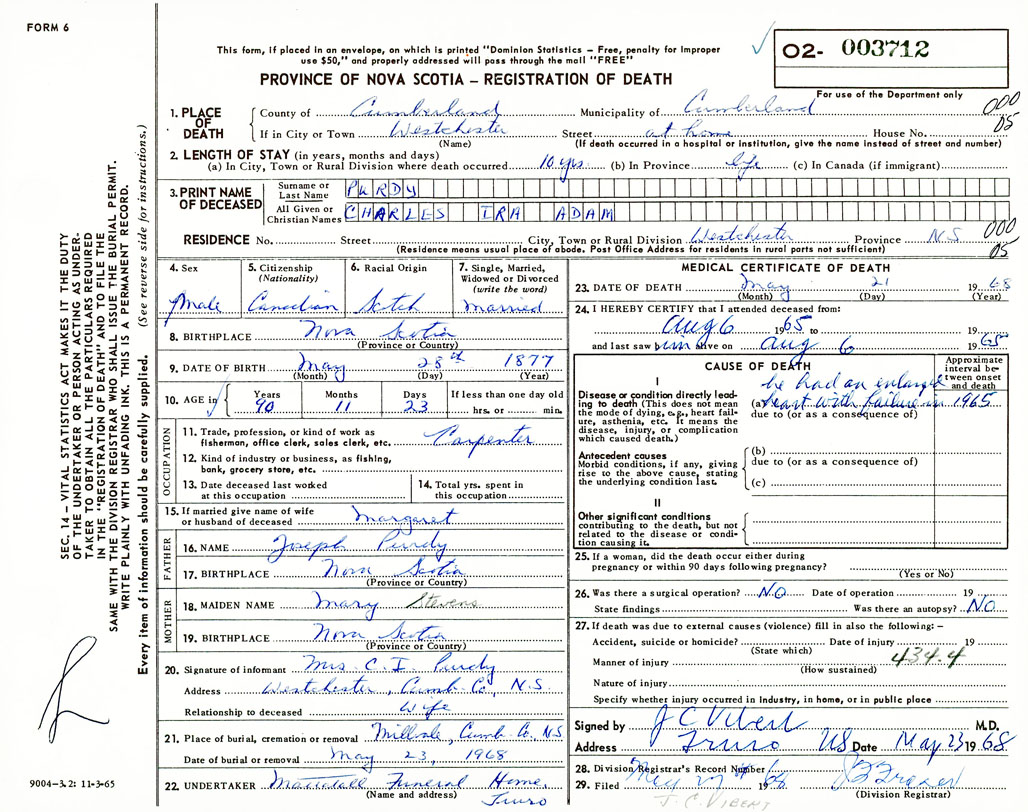 FORM 6
This form, if placed in an envelope, on which is printed "Dominion Statistics – Free, penalty for improper
use $50," and properly addressed will pass through the mail "FREE"
PROVINCE OF NOVA SCOTIA – REGISTRATION OF DEATH
O2- 003712
For use of the Department only
000
05
1. PLACE OF DEATH
County of Cumberland Municipality of Cumberland
If in City or Town Westchester Street at home House No.
(Name) (If death occurred in a hospital or institution, give the name instead of street and number)
2. LENGTH OF STAY (in years, months and days)
(a) In City, Town or Rural Division where death occurred 10 yrs. (b) In Province life (c) In Canada (if immigrant)
3. PRINT NAME OF DECEASED
Surname or Last Name PURDY
All Given or Christian Names CHARLES IRA ADAM
RESIDENCE No. Street City, Town or Rural Division Westchester Province N.S.
(Residence means usual place of abode. Post Office Address for residents in rural parts not sufficient)
000
05
4. Sex Male
5. Citizenship (Nationality) Canadian
6. Racial Origin Scotch
7. Single, Married, Widowed or Divorced (write the word) married
8. BIRTHPLACE Nova Scotia
(Province or Country)
9. DATE OF BIRTH May 28th 1877
(Month) (Day) (Year)
10. AGE in Years 90 Months 11 Days 23 If less than one day old hrs. or min.
OCCUPATION
11. Trade, profession, or kind of work as fisherman, office clerk, sales clerk, etc. Carpenter
12. Kind of industry or business, as fishing, bank, grocery store, etc.
13. Date deceased last worked at this occupation
14. Total yrs. spent in this occupation
15. If married give name of wife or husband of deceased Margaret
FATHER
16. NAME Joseph Purdy
17. BIRTHPLACE Nova Scotia
(Province or Country)
MOTHER
18. MAIDEN NAME Mary Stevens
19. BIRTHPLACE Nova Scotia
(Province or Country)
20. Signature of informant Mrs. C. I. Purdy
Address Westchester, Cumb. Co., N.S.
Relationship to deceased Wife
21. Place of burial, cremation or removal Millvale, Cumb. Co. NS
Date of burial or removal May 23, 1968
22. UNDERTAKER Funeral Home,
(Name and address) Truro
MEDICAL CERTIFICATE OF DEATH
23. DATE OF DEATH May 21 1968
(Month) (Day) (Year)
24. I HEREBY CERTIFY that I attended deceased from:
Aug 6 1965 to 19
and last saw him alive on Aug 6 1965
CAUSE OF DEATH
Approximate interval between onset and death
I
Disease or condition directly leading to death (This does not mean the mode of dying, e.g., heart failure, asthenia, etc. It means the disease, injury, or complication which caused death.)
he had an enlarged
(a) heart with failure in 1965
due to (or as a consequence of)
Antecedent causes
Morbid conditions, if any, giving rise to the above cause, stating the underlying condition last.
(b)
due to (or as a consequence of)
(c)
II
Other significant conditions
contributing to the death, but not related to the disease or condition causing it.
25. If a woman, did the death occur either during
pregnancy or within 90 days following pregnancy?
(Yes or No)
26. Was there a surgical operation? NO Date of operation 19
State findings Was there an autopsy? NO
27. If death was due to external causes (violence) fill in also the following: –
Accident, suicide or homicide? Date of injury 19
(State which)
Manner of injury 434.4
(How sustained)
Nature of injury
Specify whether injury occurred in industry, in home, or in public place
Signed by J C Vibert M.D.
Address Truro NS Date May 23 1968
28. Division Registrar's Record Number
29. Filed May 27 1968
(Division Registrar)
J. C. VIBERT
SEC. 14 – VITAL STATISTICS ACT MAKES IT THE DUTY
OF THE UNDERTAKER OR PERSON ACTING AS UNDER-
TAKER TO OBTAIN ALL THE PARTICULARS REQUIRED
IN THE "REGISTRATION OF DEATH" AND TO FILE THE
SAME WITH THE DIVISION REGISTRAR WHO SHALL ISSUE THE BURIAL PERMIT.
WRITE PLAINLY WITH UNFADING INK. THIS IS A PERMANENT RECORD.
Every item of information should be carefully supplied. (See reverse side for instructions.)
9004-3.2: 11-3-65